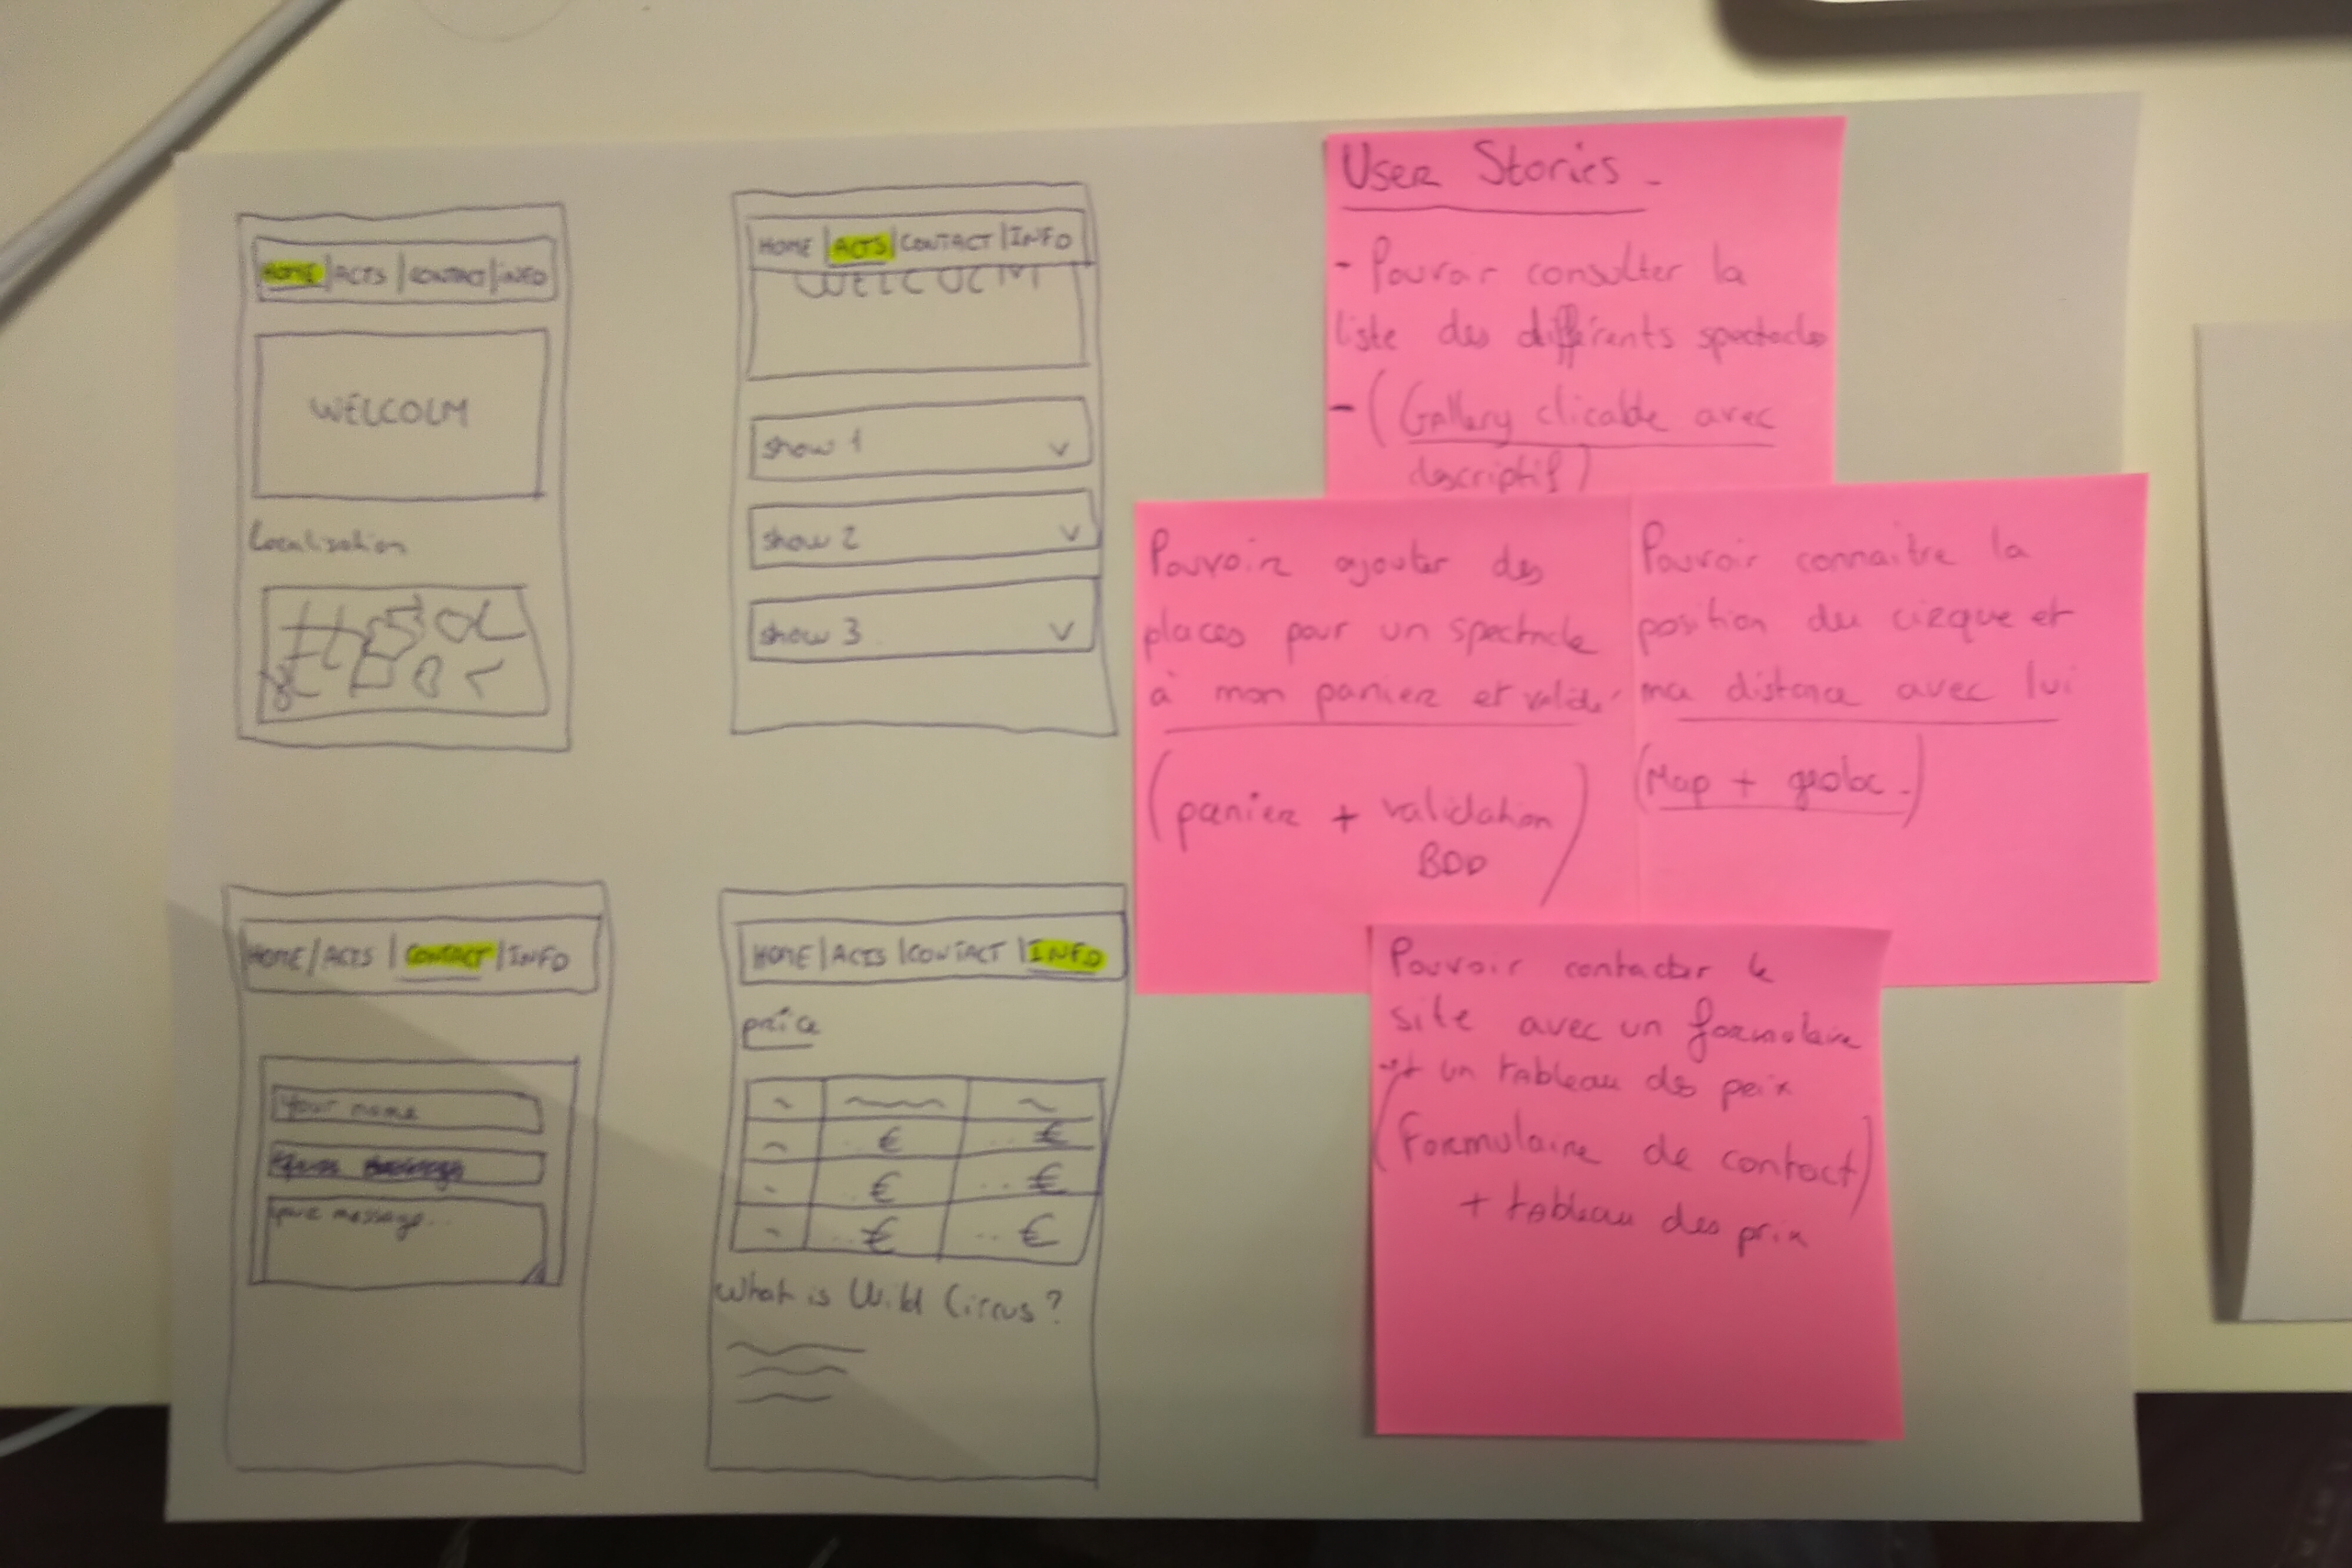 HOME | ACTS | CONTACT | INFO
WELCOLM
Localisation
HOME | ACTS | CONTACT | INFO
WELCOCM
show 1
show 2
show 3
HOME / ACTS | CONTACT | INFO
Your name
your message...
HOME | ACTS | CONTACT | INFO
price
€ €
€ €
€ €
What is Wild Circus?
User Stories -
- Pouvoir consulter la
liste des différents spectacles
- (Gallery clicable avec
descriptif)
Pouvoir ajouter des
places pour un spectacle
à mon panier et valider
(panier + validation
BDD)
Pouvoir connaitre la
position du cirque et
ma distance avec lui
(Map + geoloc.)
Pouvoir contacter le
site avec un formulaire
et un tableau des prix
(Formulaire de contact)
+ tableau des prix